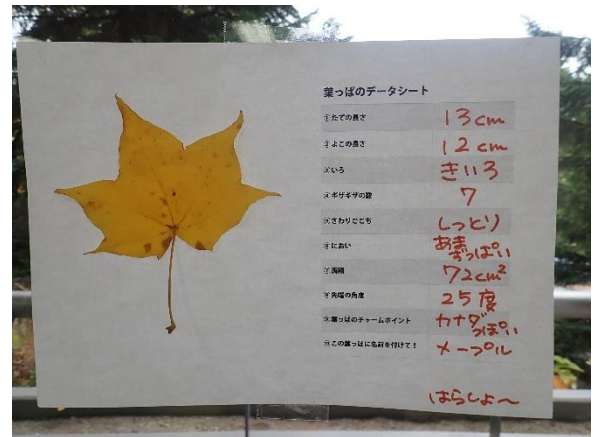 葉っぱのデータシート
①たての長さ 13cm
②よこの長さ 12cm
③いろ きいろ
④ギザギザの数 7
⑤さわりごこち しっとり
⑥におい あまずっぱい
⑦面積 72cm²
⑧先端の角度 25度
⑨葉っぱのチャームポイント カナダっぽい
⑩この葉っぱに名前を付けて! メープル
はらしょ〜